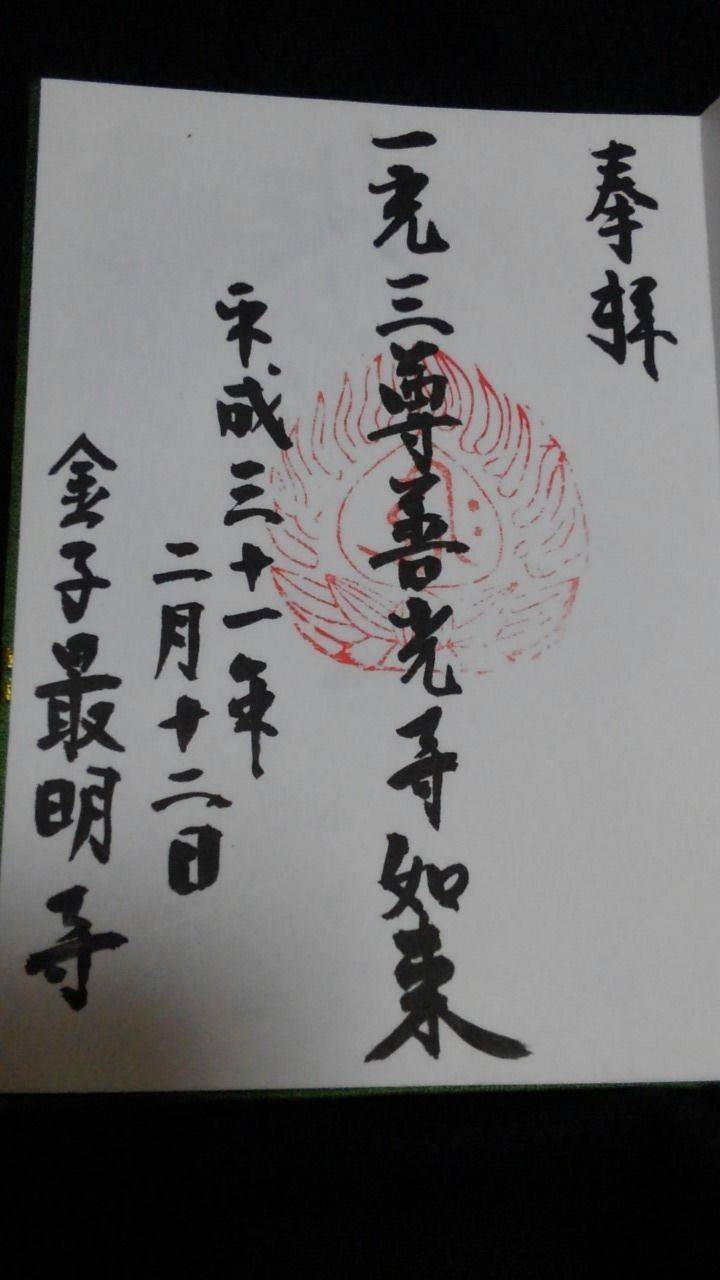 奉拝
一光三尊善光寺如来
平成三十一年
二月十二日
金子最明寺